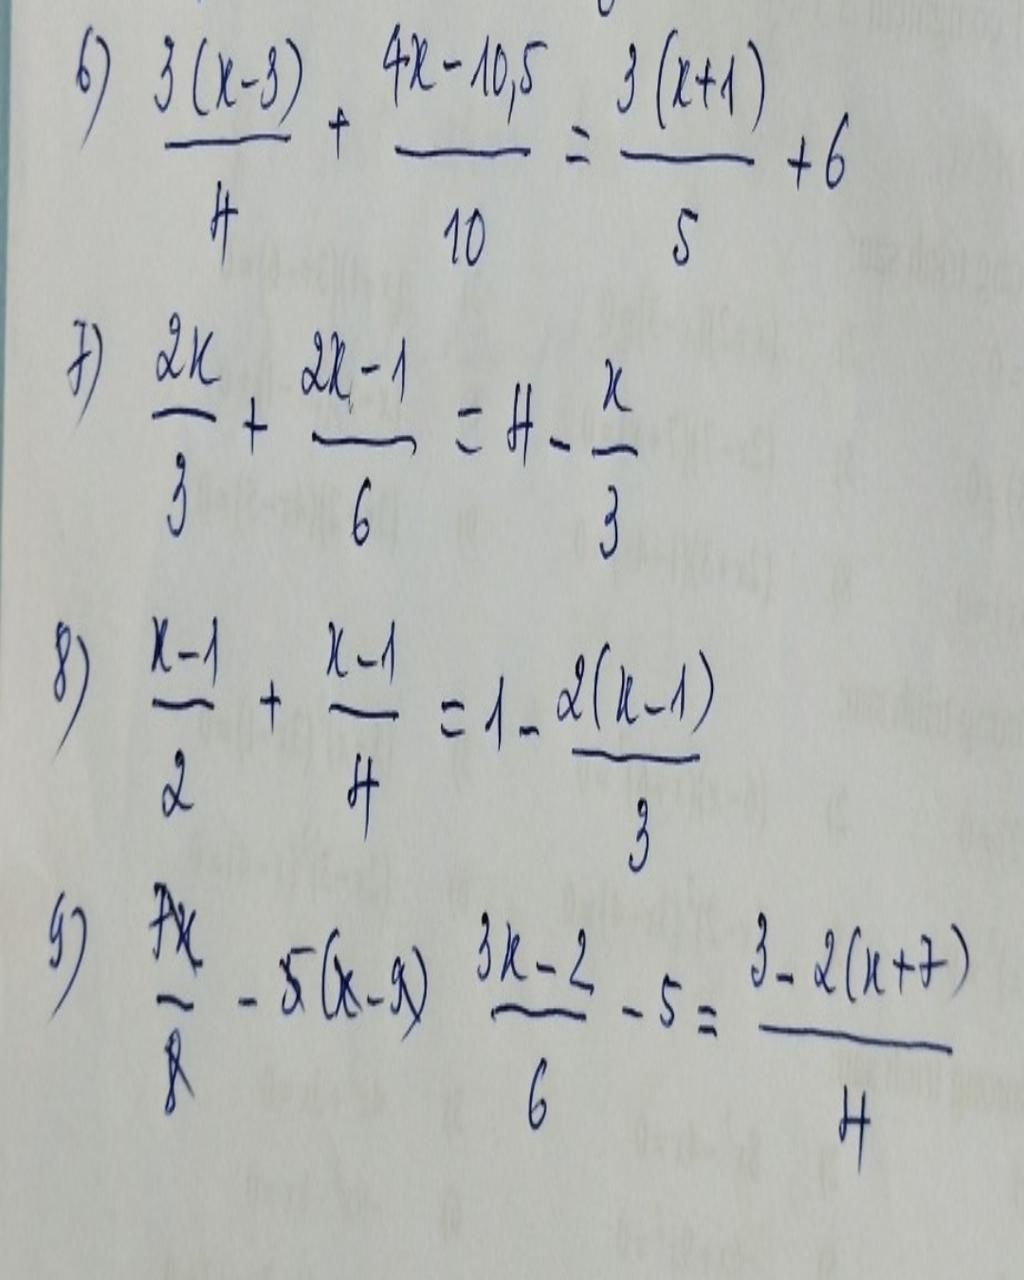 6) 3(x-3)/4 + 4x-10,5/10 = 3(x+1)/5 + 6
7) 2x/3 + 2x-1/6 = 4 - x/3
8) x-1/2 + x-1/4 = 1 - 2(x-1)/3
9) 7x/8 - 5(x-9) 3x-2/6 - 5 = 3-2(x+7)/4